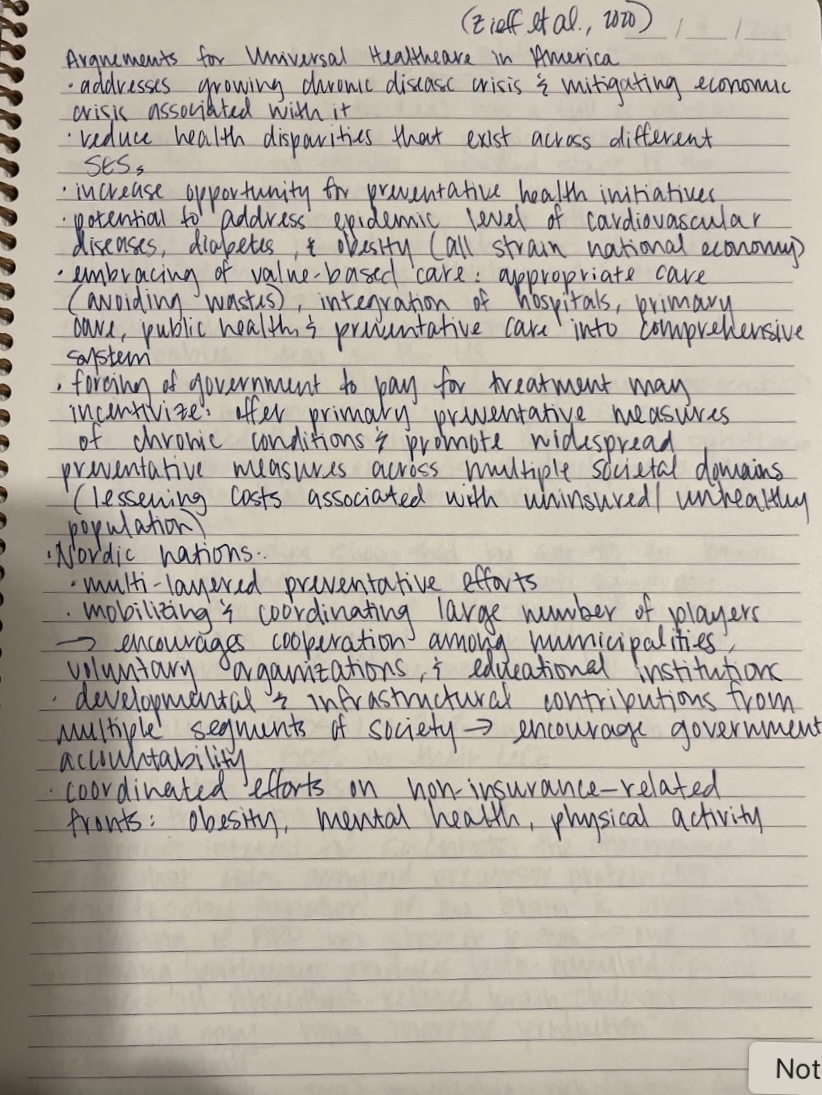 (Zieff et al., 2020) / /
Arguements for Universal Healthcare in America
· addresses growing chronic disease crisis & mitigating economic
crisis associated with it
· reduce health disparities that exist across different
SESs
· increase opportunity for preventative health initiatives
· potential to address epidemic level of cardiovascular
diseases, diabetes, & obesity (all strain national economy)
· embracing of value-based care: appropriate care
(avoiding wastes), integration of hospitals, primary
care, public health, & preventative care into comprehensive
system
· forcing of government to pay for treatment may
incentivize: offer primary preventative measures
of chronic conditions & promote widespread
preventative measures across multiple societal domains
(lessening costs associated with uninsured/unhealthy
population)
· Nordic nations:
· multi-layered preventative efforts
· mobilizing & coordinating large number of players
→ encourages cooperation among municipalities,
voluntary organizations, & educational institutions
· developmental & infrastructural contributions from
multiple segments of society → encourage government
accountability
· coordinated efforts on non-insurance-related
fronts: obesity, mental health, physical activity
Not